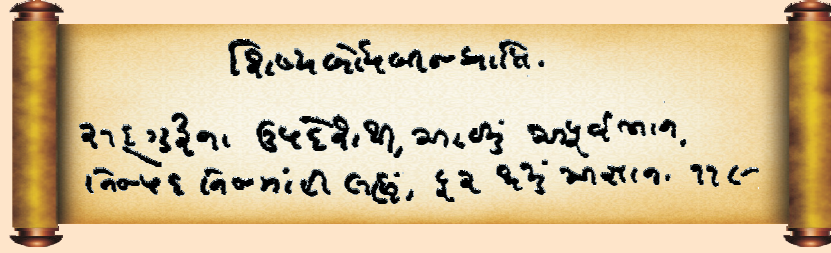 શિષ્યબોધબીજપ્રાપ્તિ.
સદ્ગુરુના ઉપદેશથી, આવ્યું અપૂર્વ ભાન,
નિજપદ નિજમાંહી લહ્યું, દૂર થયું અજ્ઞાન. ૧૧૯